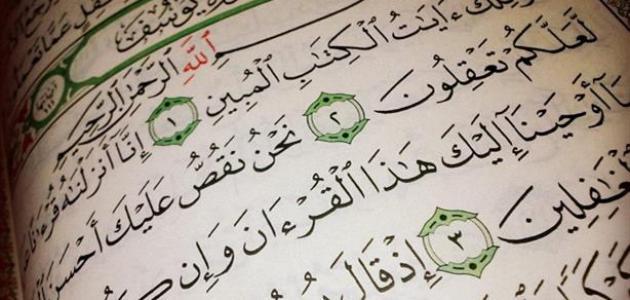 عَمَّا
يُوسُفَ
ٱللَّهِ ٱلرَّحْمَٰنِ ٱلرَّحِيمِ
ءَايَٰتُ ٱلْكِتَٰبِ ٱلْمُبِينِ ١ إِنَّآ أَنزَلْنَٰهُ
لَّعَلَّكُمْ تَعْقِلُونَ ٢ نَحْنُ نَقُصُّ عَلَيْكَ أَحْسَنَ
أَوْحَيْنَآ إِلَيْكَ هَٰذَا ٱلْقُرْءَانَ وَإِن
ٱلْغَٰفِلِينَ ٣ إِذْ قَالَ